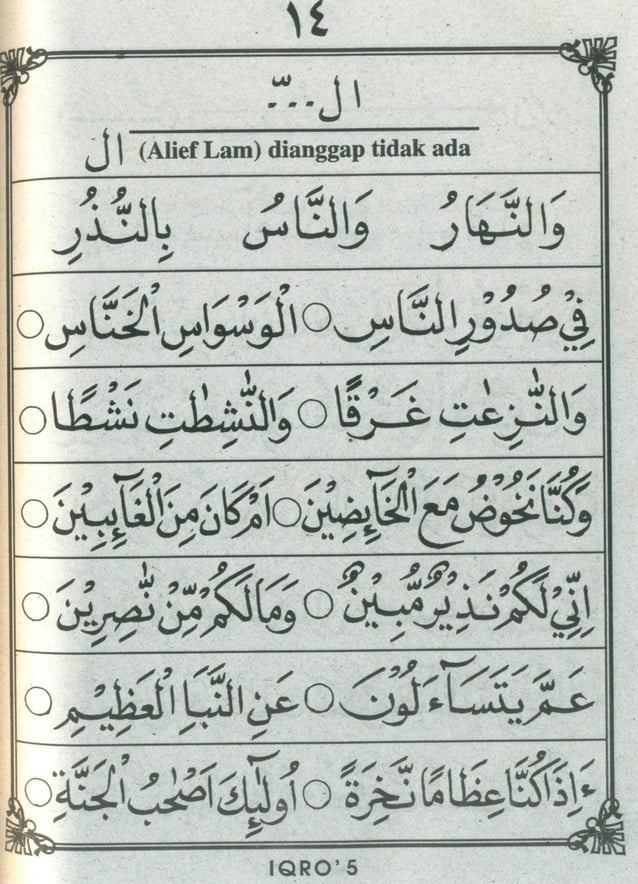 ١٤
ال...ـّ
ال (Alief Lam) dianggap tidak ada
وَالنَّهَارُ وَالنَّاسُ بِالنُّذُرِ
فِيْ صُدُوْرِ النَّاسِ ○ الْوَسْوَاسِ الْخَنَّاسِ ○
وَالنّٰزِعٰتِ غَرْقًا ○ وَالنّٰشِطٰتِ نَشْطًا ○
وَكُنَّا نَخُوْضُ مَعَ الْخَآئِضِيْنَ ○ اَمْ كَانَ مِنَ الْغَآئِبِيْنَ ○
اِنِّيْ لَكُمْ نَذِيْرٌ مُّبِيْنٌ ○ وَمَا لَكُمْ مِّنْ نّٰصِرِيْنَ ○
عَمَّ يَتَسَآءَلُوْنَ ○ عَنِ النَّبَاِ الْعَظِيْمِ ○
ءَاِذَا كُنَّا عِظَامًا نَّخِرَةً ○ اُولٰٓئِكَ اَصْحٰبُ الْجَنَّةِ ○
IQRO' 5